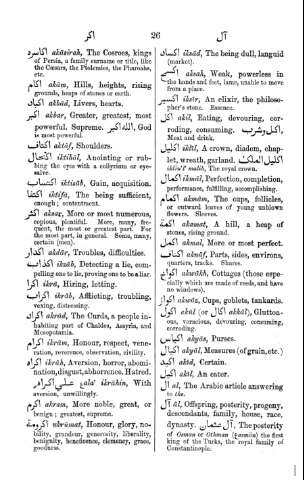 اكر
26
آل
اكاسره akāsirah, The Cosroes, kings
of Persia, a family surname or title, like
the Cæsars, the Ptolemies, the Pharoahs,
etc.
اكام akām, Hills, heights, rising
grounds, heaps of stones or earth.
اكباد akbād, Livers, hearts.
اكبر akbar, Greater, greatest, most
powerful. Supreme. الله اكبر, God
is most powerful.
اكتاف aktāf, Shoulders.
اكتحال iktiḥāl, Anointing or rub-
bing the eyes with a collyrium or eye-
salve.
اكتساب iktisāb, Gain, acquisition.
اكتفا iktifa, The being sufficient,
enough; contentment.
اكثر aksar, More or most numerous,
copious, plentiful. More, many, fre-
quent, the most or greatest part. For
the most part, in general. Some, many,
certain (men).
اكدار akdār, Troubles, difficulties.
اكذاب ikzāb, Detecting a lie, com-
pelling one to lie, proving one to be a liar.
اكرا ikrā, Hiring, letting.
اكراب ikrāb, Afflicting, troubling,
vexing, distressing.
اكراد akrād, The Curds, a people in-
habiting part of Chaldea, Assyria, and
Mesopotamia.
اكرام ikrām, Honour, respect, vene-
ration, reverence, observation, civility.
اكراه ikrāh, Aversion, horror, abomi-
nation, disgust, abhorrence. Hatred.
علي اكراه ạla' ikrāhin, With
aversion, unwillingly.
اكرم akram, More noble, great, or
benign; greatest, supreme.
اكرومة ukrūmat, Honour, glory, no-
bility, grandeur, generosity, liberality,
benignity, beneficence, clemency, grace,
goodness.
اكساد iksād, The being dull, languid
(market).
aksaḥ, Weak, powerless in
the hands and feet, lame, unable to move
from a place.
اكسير iksīr, An elixir, the philoso-
pher's stone. Essence.
اكل akil, Eating, devouring, cor-
roding, consuming. اكل و شرب,
Meat and drink.
اكليل iklīl, A crown, diadem, chap-
let, wreath, garland. اكليل الملك
iklīlu'l malik, The royal crown.
اكمال ikmāl, Perfection, completion,
performance, fulfilling, accomplishing.
اكمام akmām, The cups, follicles,
or outward leaves of young unblown
flowers. Sleeves.
اكمة akamat, A hill, a heap of
stones, rising ground.
اكمل akmal, More or most perfect.
اكناف aknāf, Parts, sides, environs,
quarters, tracks. Shares.
اكواخ akwākh, Cottages (those espe-
cially which are made of reeds, and have
no windows).
اكواز akwāz, Cups, goblets, tankards.
اكول akūl (or اكال akkāl), Glutton-
ous, voracious, devouring, consuming,
corroding.
اكياس akyās, Purses.
اكيال akyāl, Measures (of grain, etc.)
اكيد akīd, Certain.
اكيل akīl, An eater.
ال al, The Arabic article answering
to the.
آل āl, Offspring, posterity, progeny,
descendants, family, house, race,
dynasty. آل عثمان, The posterity
of Osman or Othman (ạusmān) the first
king of the Turks, the royal family of
Constantinople.